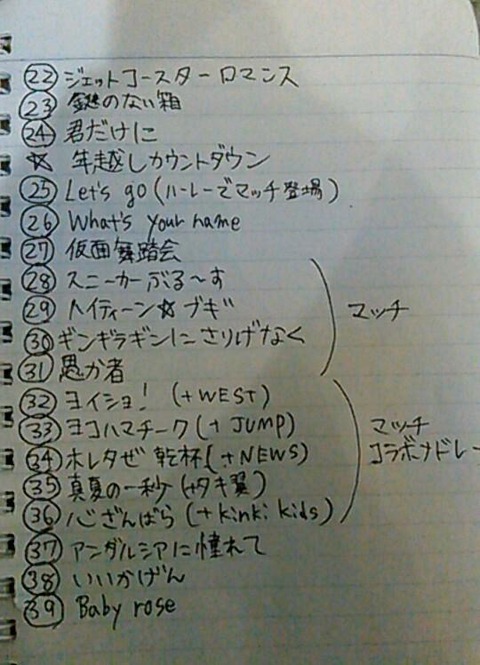 ㉒ ジェットコースターロマンス
㉓ 鍵のない箱
㉔ 君だけに
☆ 年越しカウントダウン
㉕ Let's go (ハーレーでマッチ登場)
㉖ What's your name
㉗ 仮面舞踏会
㉘ スニーカーぶる〜す
㉙ ハイティーン☆ブギ
㉚ ギンギラギンにさりげなく
㉛ 愚か者
マッチ
㉜ ヨイショ! (+WEST)
㉝ ヨコハマチーク (+ JUMP)
㉞ ホレタぜ 乾杯 (+NEWS)
㉟ 真夏の一秒 (+タキ翼)
㊱ 心ざんばら (+ kinki kids)
マッチ
コラボメドレー
㊲ アンダルシアに憧れて
㊳ いいかげん
㊴ Baby rose